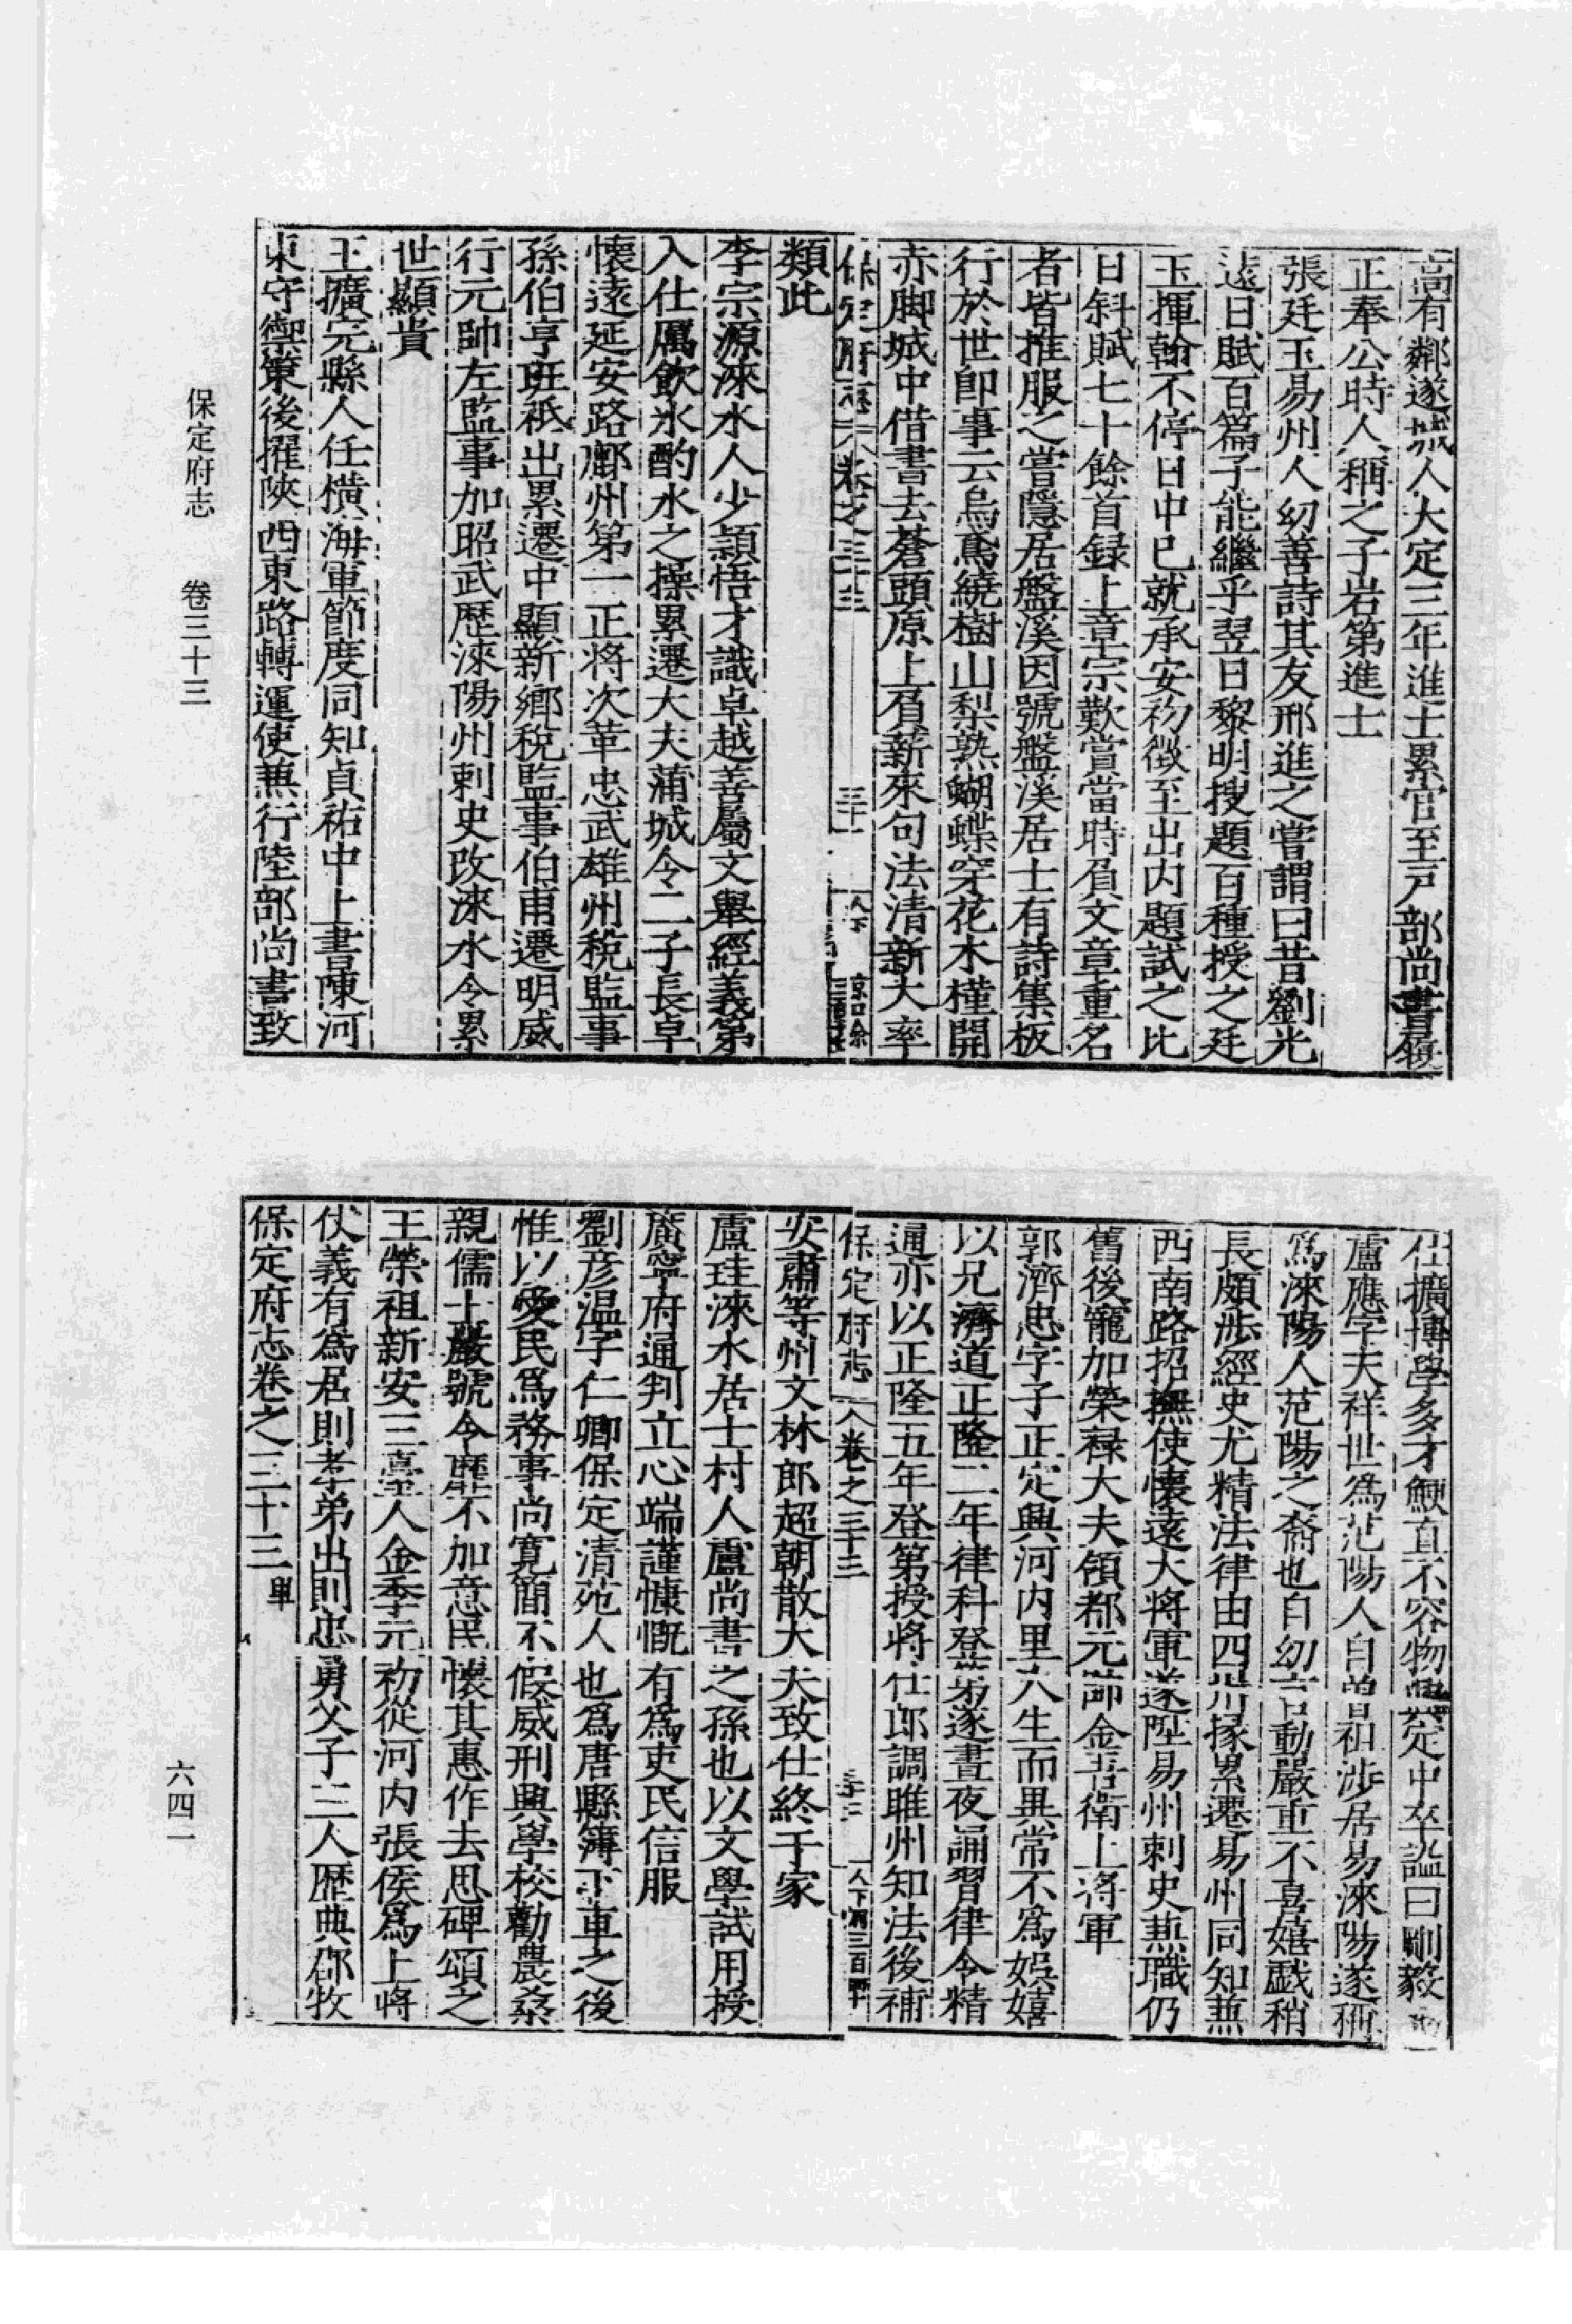 高有鄰遂城人大定三年進士累官至戸部尚書
正奉公時人稱之子岩第進士
張廷玉易州人幼善詩其友邢進之嘗謂曰昔劉光
遠日賦百篇子能繼乎翌日黎明搜題百種授之廷
玉揮翰不停日中已就承安初徴至出内題試之比
日斜賦七十餘首録上章宗歎賞當時負文章重名
者皆推服之嘗隱居盤溪因號盤溪居士有詩集板
行於世卽事云烏鳶繞樹山梨熟蝴蝶穿花木槿開
赤脚城中借書去蒼頭原上負薪來句法清新大率
保定府志 卷之三十三 三十一 人下
類此
李宗源淶水人少頴悟才識卓越善屬文舉經義第
入仕厲飲氷酌水之操累遷大夫蒲城令二子長卓
懷遠延安路鄜州第一正将次革忠武雄州稅監事
孫伯亨班祗出累遷中顯新鄉稅監事伯甫遷明威
行元帥左監事加昭武歴淶陽州刺史改淶水令累
世顯貴
王擴完縣人任橫海軍節度同知貞祐中上書陳河
東守禦策後擢陝西東路轉運使兼行陸部尚書致
保定府志 卷三十三
仕擴博學多才鯁直不容物興定中卒謚曰剛毅
盧應字天祥世爲范陽人自曽祖渉居易淶陽遂稱
爲淶陽人范陽之裔也自幼言動嚴重不喜嬉戯稍
長頗渉經史尤精法律由四州掾累遷易州同知兼
西南路招撫使懷遠大将軍遂陞易州刺史兼職仍
舊後寵加榮禄大夫領都元帥金吾衛上將軍
郭濟忠字子正定興河内里人生而異常不爲娯嬉
以兄濟道正隆二年律科登第遂晝夜誦習律令精
通亦以正隆五年登第授将仕郎調睢州知法後補
保定府志 卷之三十三 三十二 人下
安肅等州文林郎超朝散大夫致仕終于家
盧珪淶水居士村人盧尚書之孫也以文學試用授
廣寧府通判立心端謹慷慨有爲吏民信服
劉彦温字仁卿保定清苑人也爲唐縣簿下車之後
惟以愛民爲務事尚寛簡不假威刑興學校勸農桑
親儒士嚴號令歴不加意民懷其惠作去思碑頌之
王榮祖新安三臺人金季元初從河内張侯爲上将
仗義有爲居則孝弟出則忠勇父子三人歴典郡牧
保定府志卷之三十三 畢
六四一